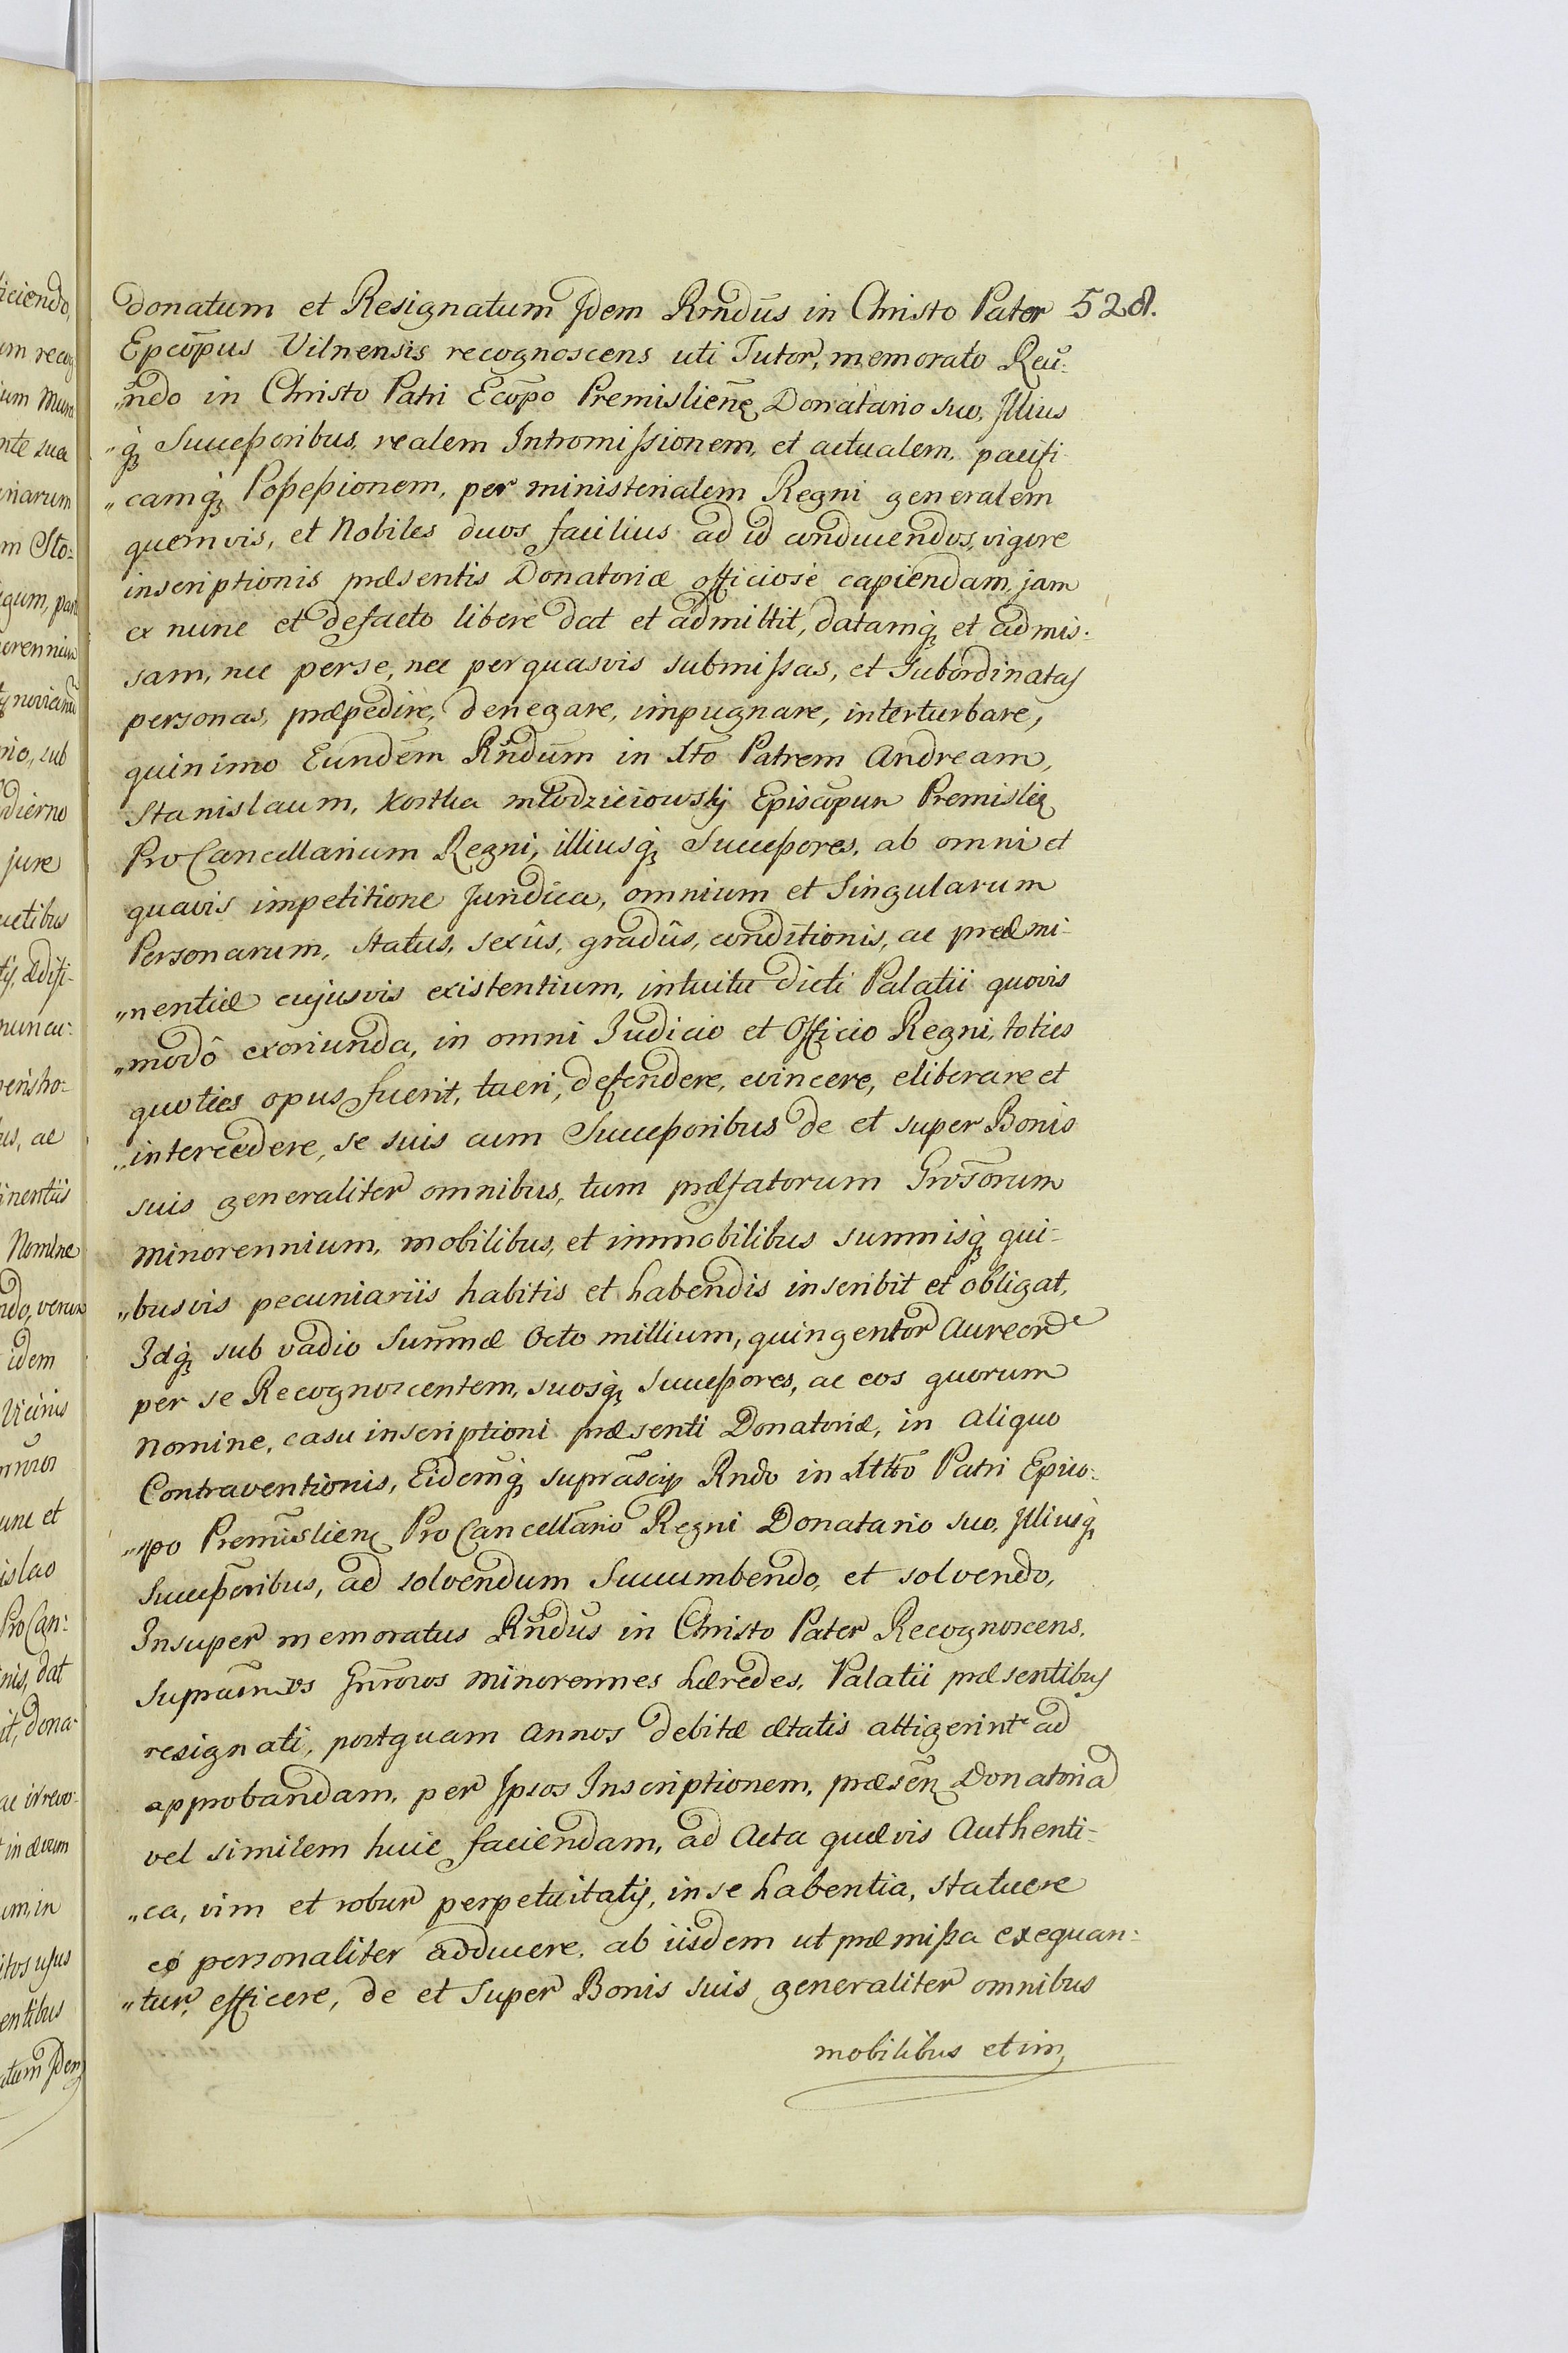 528.
donatum et Resignatum Idem Rñdus in Christo Pater
Epcõpus Vilnensis recognoscens uti Tutor, memorato Reũ:
„ndo in Christo Patri Ecõpo Premislien̄ę Donatario suo, Illius
„q̨ Successoribus, realem Intromissionem, et actualem, pacifi-
„camq̨ Possessionem, per ministerialem Regni generalem
quemvis, et Nobiles duos facilius ad id conducendos, vigore
inscriptionis præsentis Donatoriæ officiosè capiendam, jam
ex nunc et defacto liberè dat et admittit, datamq̨ et admis-
sam, nec perse, nec perquasvis submissas, et Subordinatas
personas, præpedire, denegare, impugnare, interturbare,
quinimo Eundem Rñdum in Xto Patrem Andream,
Stanislaum, Kostka Młodzieiowsky Episcopum Premislię
ProCancellarium Regni, illiusq̨ Successores, ab omni et
quavis impetitione Juridica, omnium et Singularum
Personarum, status, sexûs, gradûs, conditionis, ac præemi-
„nentiæ cujusvis existentium, intuitu dicti Palatii quovis
„modô exoriunda, in omni Judicio et Officio Regni, toties
quoties opus fuerit, tueri, defendere, evincere, eliberare et
„intercedere, se suis cum Successoribus de et super Bonis
suis generaliter omnibus, tum præfatorum Grosorum
minorennium, mobilibus, et immobilibus summisq̨ qui-
„busvis pecuniariis habitis et habendis inscribit et obligat,
Idq̨ sub vadio Summæ Octo millium, quingentor Aureor
per se Recognoscentem, suosq̨ Successores, ac eos quorum
nomine, casu inscriptioni præsenti Donatoriæ, in aliquo
Contraventionis, Eidemq̨ suprascrip Rndo in Xtto Patri Epico:
„po Premislienę ProCancellario Regni Donatario suo, Illiusq̨
Successoribus, ad solvendum Succumbendo, et solvendo,
Insuper memoratus Rñdus in Christo Pater Recognoscens,
minorennes hæredes, Palatii præsentibus
resignati, postquam annos debitæ ætatis attigerint ad
approbandam, per Ipsos Inscriptionem, præsen̄ Donatoria
vel similem huic faciendam, ad Acta quævis Authenti-
„ca, vim et robur perpetuitatis, in se habentia, statuere
personaliter adducere, ab iisdem ut præmissa exequan:
„tur, efficere, de et super Bonis suis generaliter omnibus
mobilibus et im